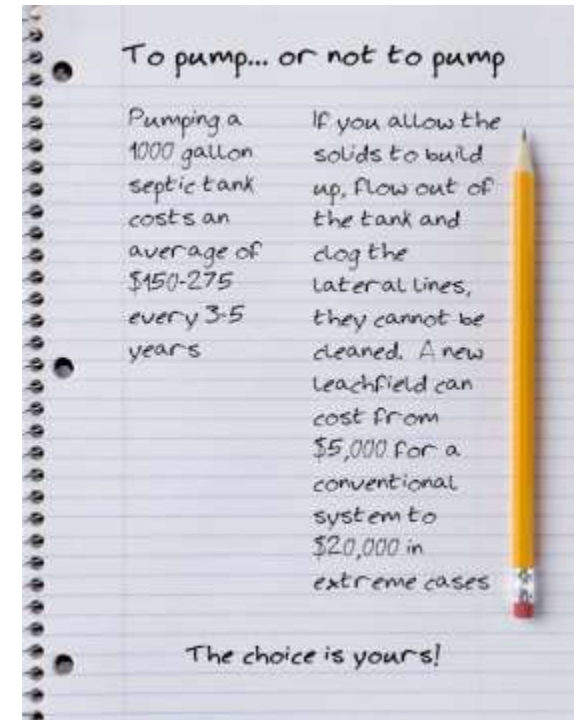 To pump... or not to pump
Pumping a
1000 gallon
septic tank
costs an
average of
$150-275
every 3-5
years
If you allow the
solids to build
up, flow out of
the tank and
clog the
lateral lines,
they cannot be
cleaned. A new
leachfield can
cost from
$5,000 for a
conventional
system to
$20,000 in
extreme cases
The choice is yours!